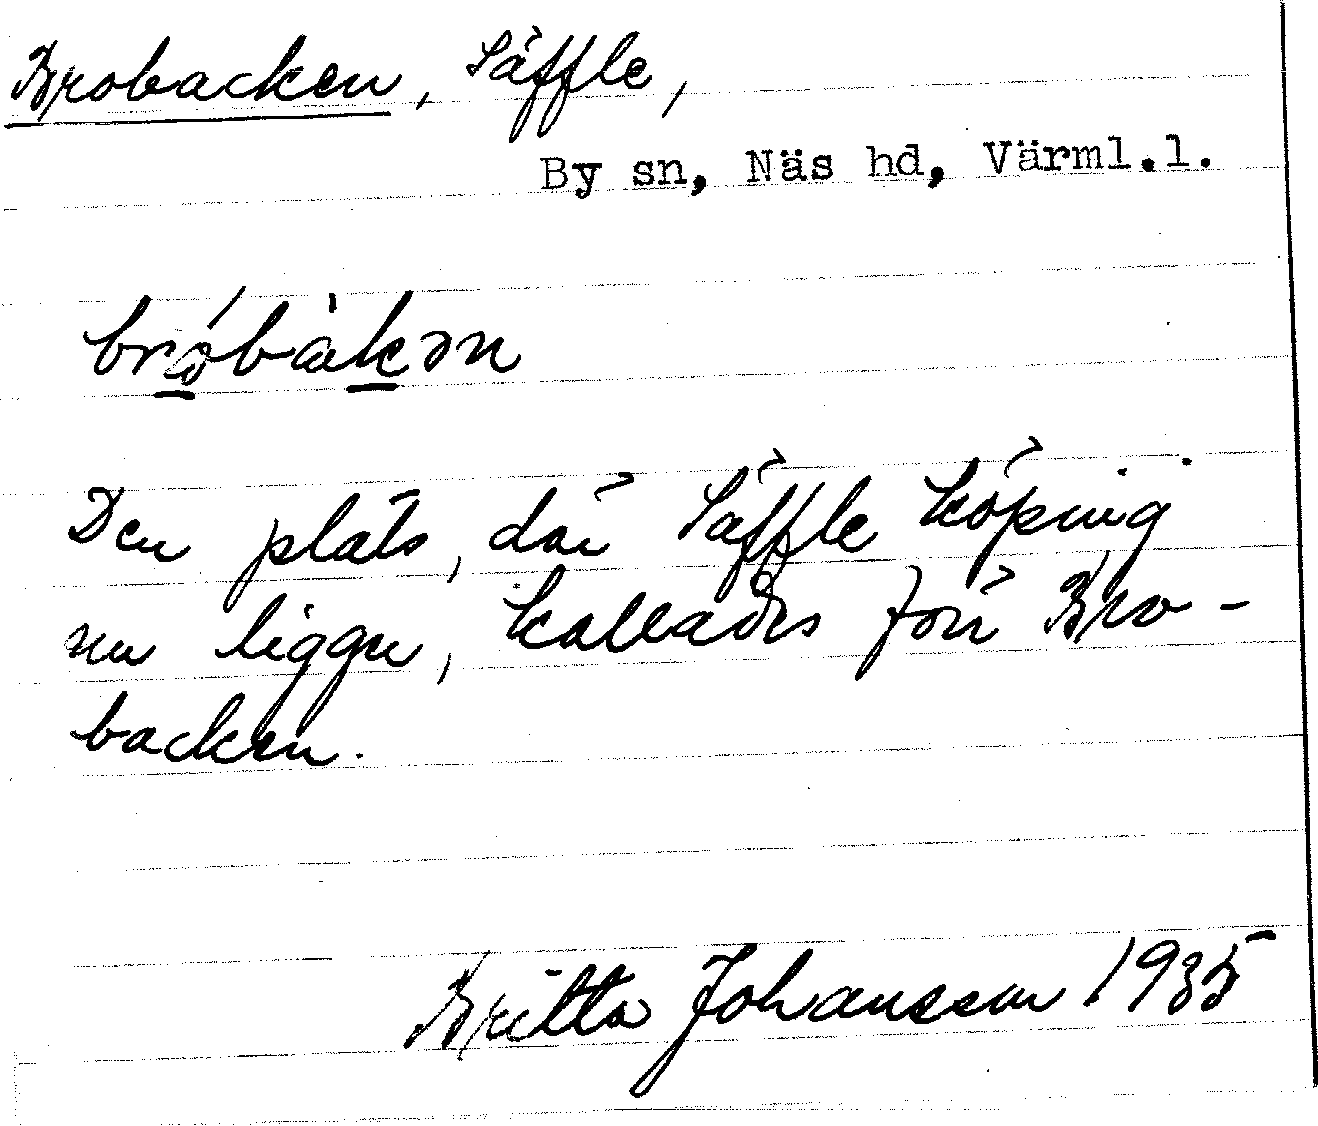 Brobacken, Säffle,
By sn, Näs hd, Värml.l.
bró̱bàḵən
Den plats, där Säffle köping
nu ligger, kallades förr Bro-
backen.
Britta Johansson 1935